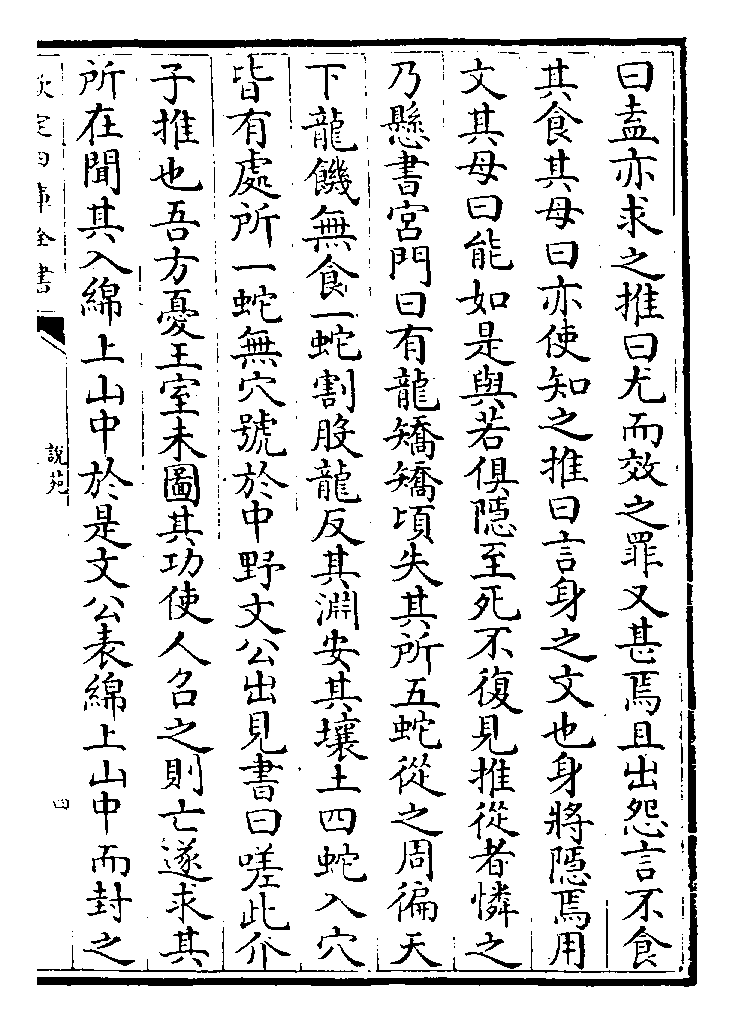 曰盍亦求之推曰尤而效之罪又甚焉且出怨言不食
其食其母曰亦使知之推曰言身之文也身將隱焉用
文其母曰能如是與若俱隱至死不復見推從者憐之
乃懸書宮門曰有龍矯矯頃失其所五蛇從之周徧天
下龍饑無食一蛇割股龍反其淵安其壤土四蛇入穴
皆有處所一蛇無穴號於中野文公出見書曰嗟此介
子推也吾方憂王室未圖其功使人召之則亡遂求其
所在聞其入綿上山中於是文公表綿上山中而封之
欽定四庫全書
說苑
四